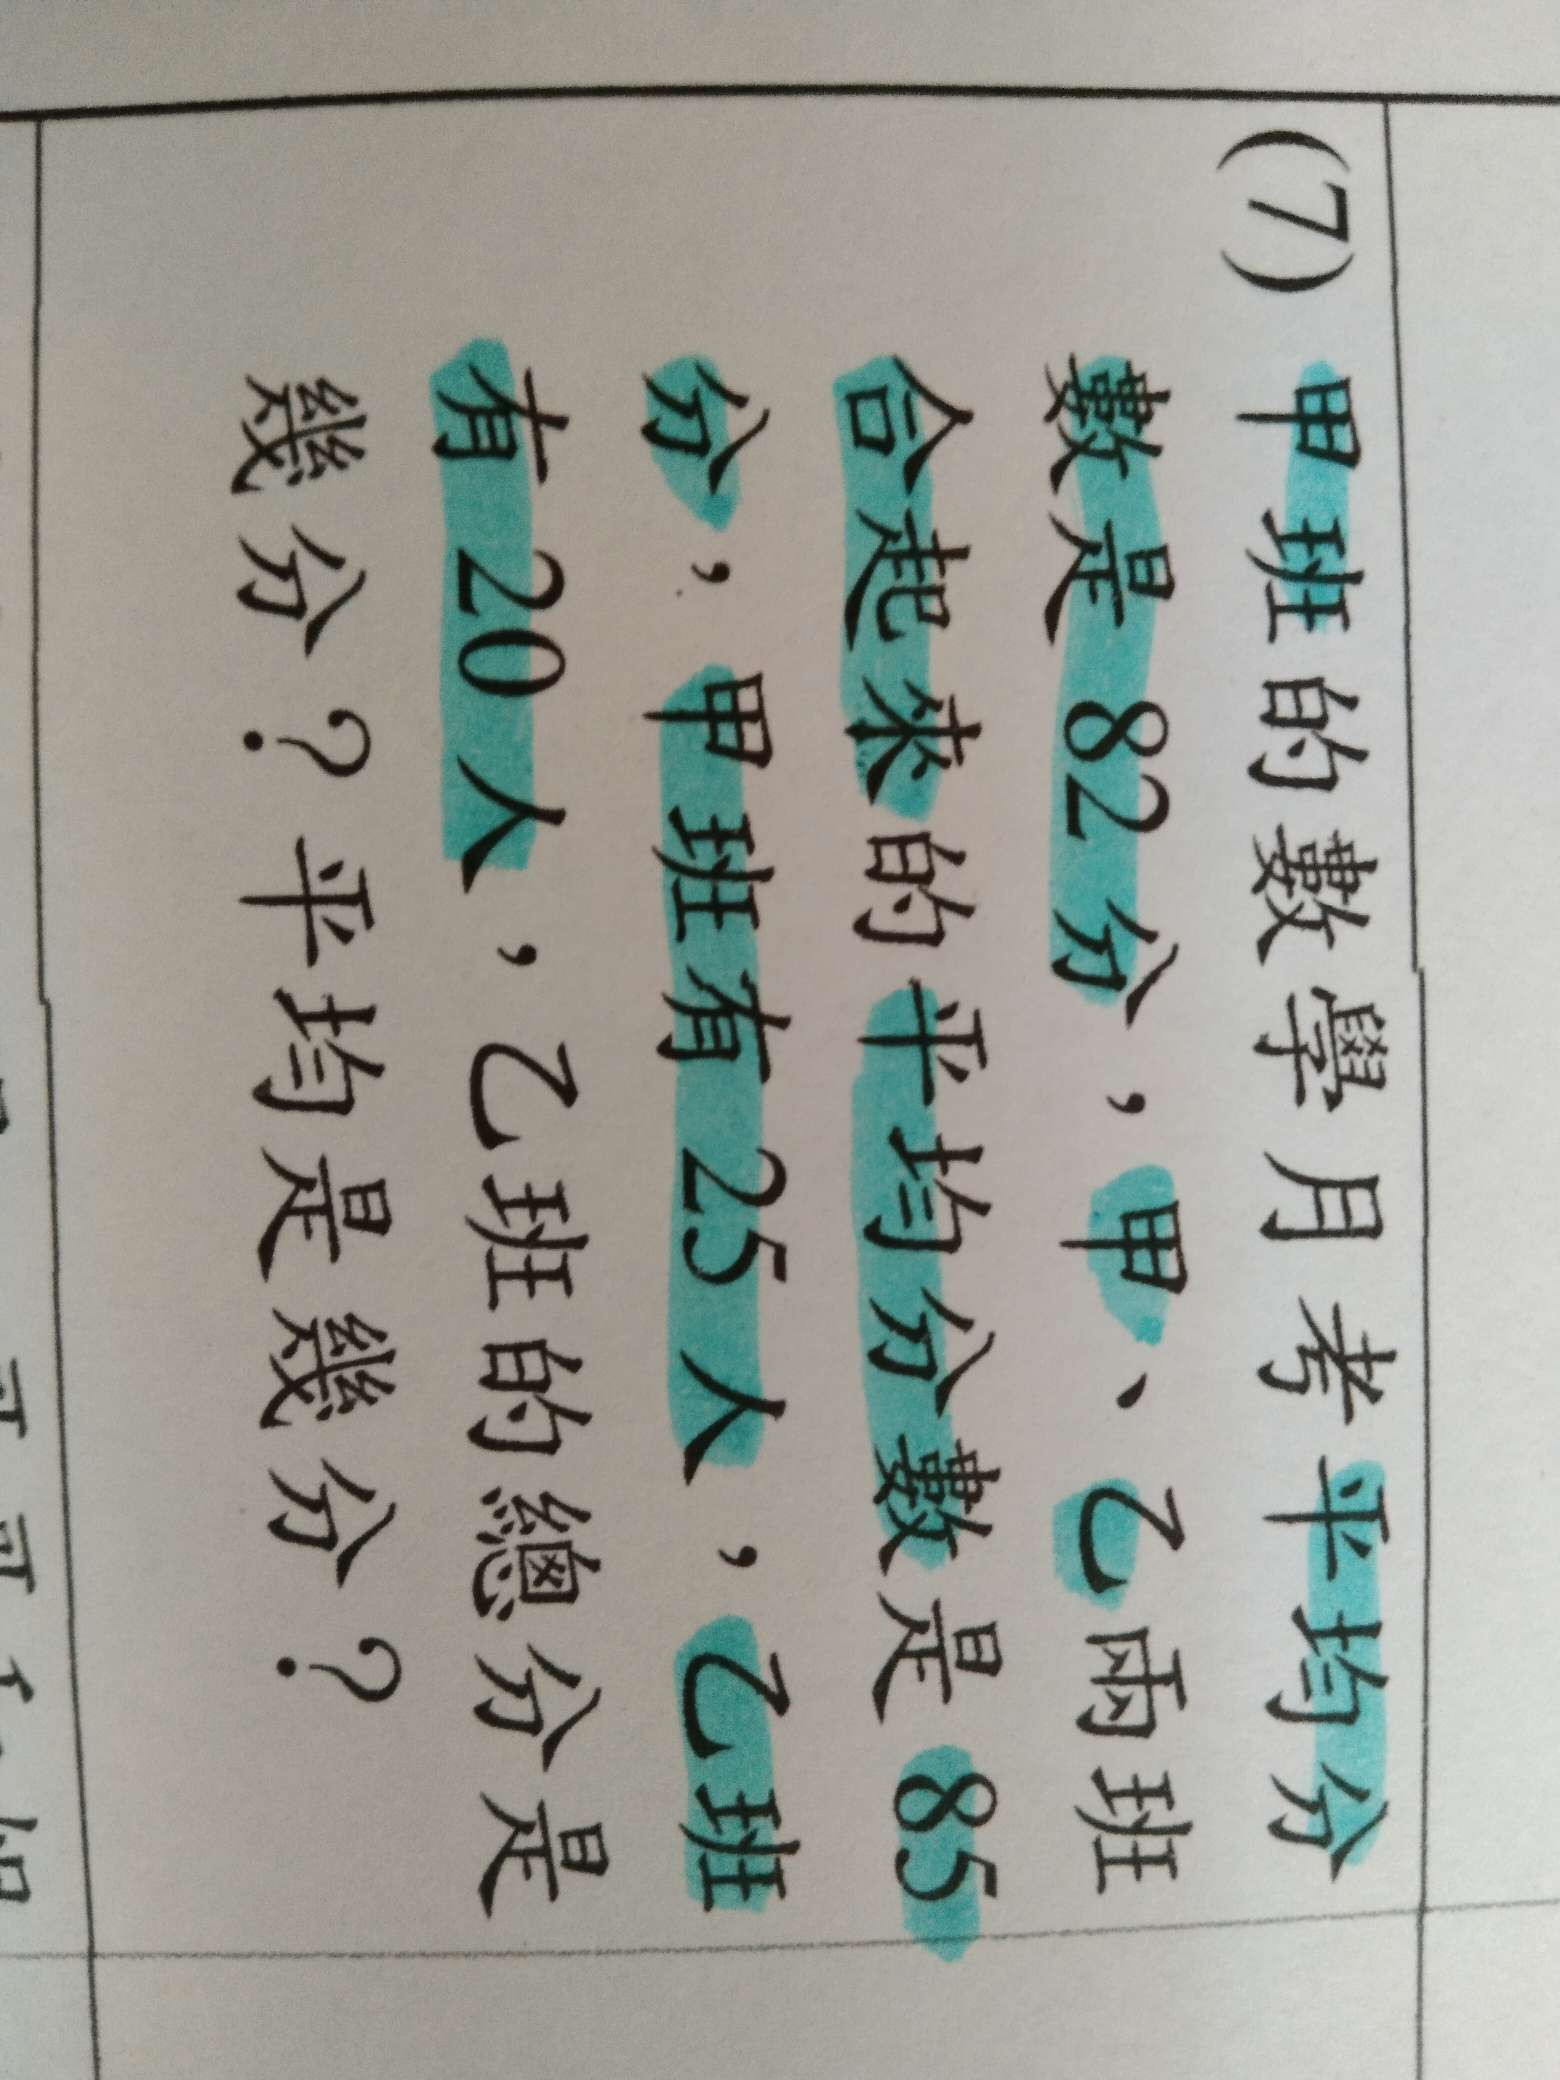 (7) 甲班的數學月考平均分
數是 82 分，甲、乙兩班
合起來的平均分數是 85
分，甲班有 25 人，乙班
有 20 人，乙班的總分是
幾分？平均是幾分？